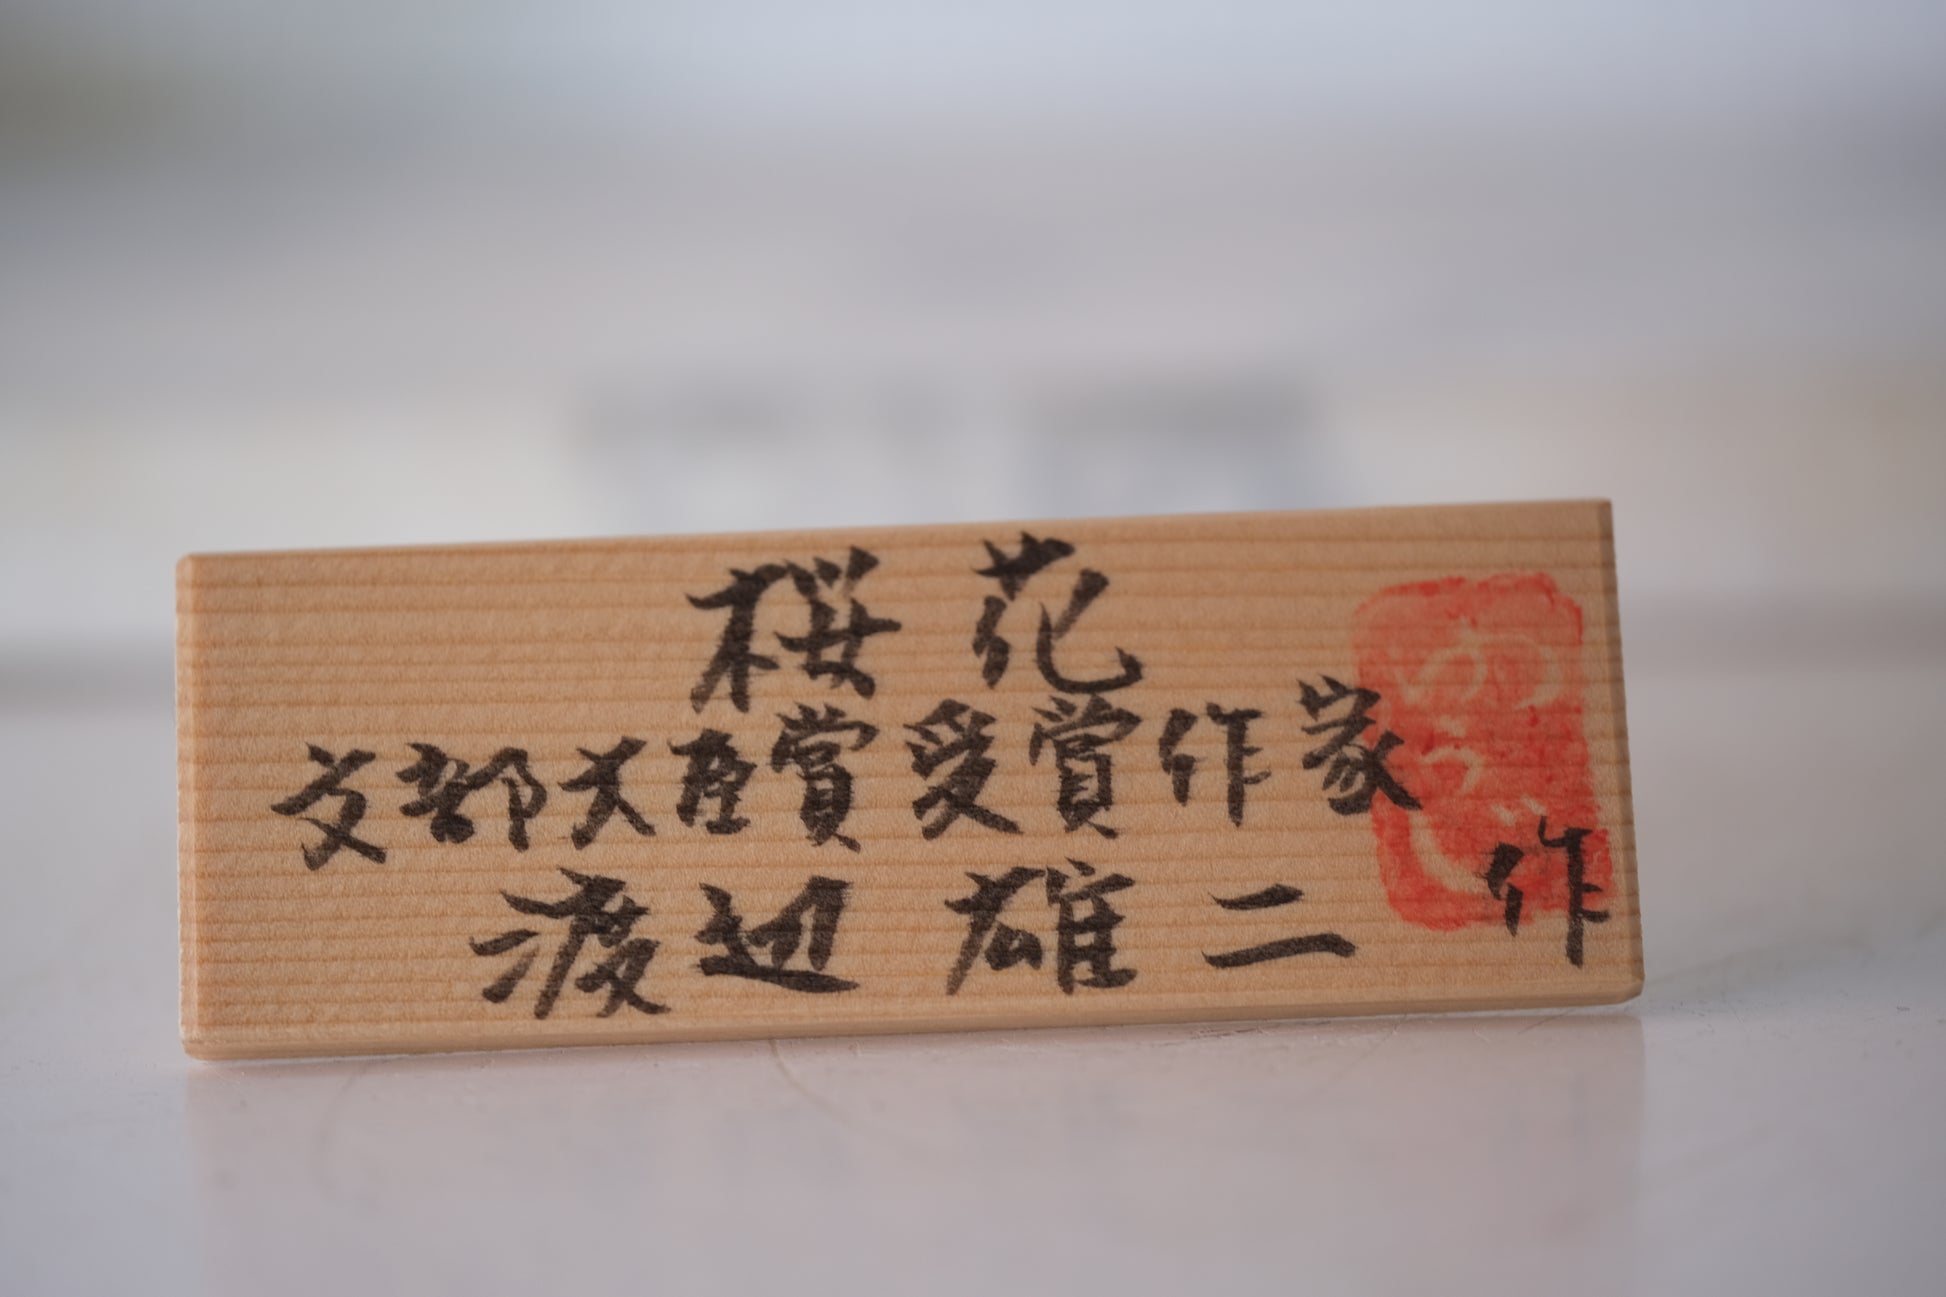 桜花
文部大臣賞受賞作家
渡辺雄二 作